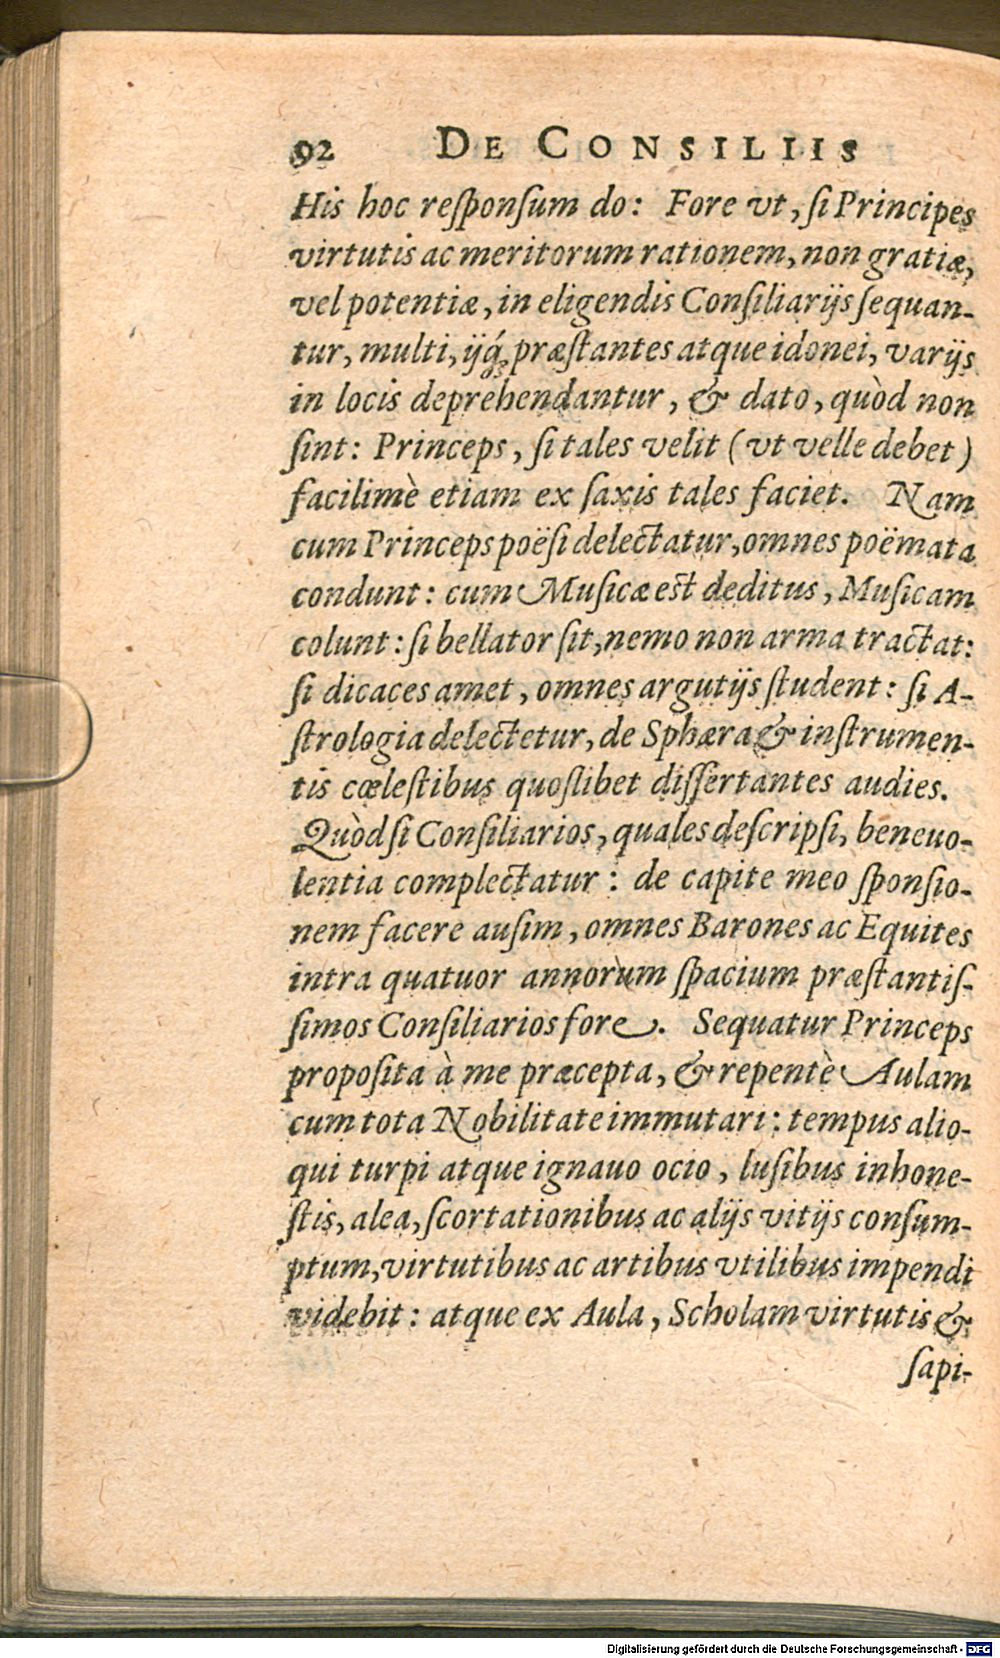 92 DE CONSILIIS
His hoc reſponſum do: Fore vt, ſi Principes
virtutis ac meritorum rationem, non gratiæ,
vel potentiæ, in eligendis Conſiliarijs ſequan-
tur, multi, ijq́; præſtantes atque idonei, varijs
in locis deprehendantur, & dato, quòd non
ſint: Princeps, ſi tales velit (vt velle debet)
facilimè etiam ex ſaxis tales faciet. Nam
cum Princeps poëſi delectatur, omnes poëmata
condunt: cum Muſicæ est deditus, Muſicam
colunt: ſi bellator ſit, nemo non arma tractat:
ſi dicaces amet, omnes argutijs ſtudent: ſi A-
ſtrologia delectetur, de Sphæra & inſtrumen-
tis cœleſtibus quoſlibet diſſertantes audies.
Quòd ſi Conſiliarios, quales deſcripſi, beneuo-
lentia complectatur: de capite meo ſponſio-
nem facere auſim, omnes Barones ac Equites
intra quatuor annorùm ſpacium præſtantiſ-
ſimos Conſiliarios fore. Sequatur Princeps
propoſita à me præcepta, & repentè Aulam
cum tota Nobilitate immutari: tempus alio-
qui turpi atque ignauo ocio, luſibus inhone-
ſtis, alea, ſcortationibus ac alijs vitijs conſum-
ptum, virtutibus ac artibus vtilibus impendi
videbit: atque ex Aula, Scholam virtutis &
ſapi-
Digitalisierung gefördert durch die Deutsche Forschungsgemeinschaft - DFG